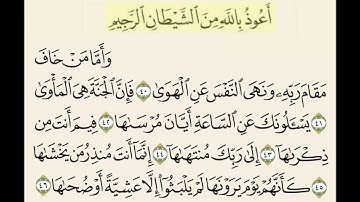 أَعُوذُ بِٱللَّهِ مِنَ ٱلشَّيْطَانِ ٱلرَّجِيمِ
وَأَمَّا مَنْ خَافَ
مَقَامَ رَبِّهِۦ وَنَهَى ٱلنَّفْسَ عَنِ ٱلْهَوَىٰ ٤٠ فَإِنَّ ٱلْجَنَّةَ هِىَ ٱلْمَأْوَىٰ
٤١ يَسْـَٔلُونَكَ عَنِ ٱلسَّاعَةِ أَيَّانَ مُرْسَىٰهَا ٤٢ فِيمَ أَنتَ مِن
ذِكْرَىٰهَآ ٤٣ إِلَىٰ رَبِّكَ مُنتَهَىٰهَآ ٤٤ إِنَّمَآ أَنتَ مُنذِرُ مَن يَخْشَىٰهَا
٤٥ كَأَنَّهُمْ يَوْمَ يَرَوْنَهَا لَمْ يَلْبَثُوٓا۟ إِلَّا عَشِيَّةً أَوْ ضُحَىٰهَا ٤٦